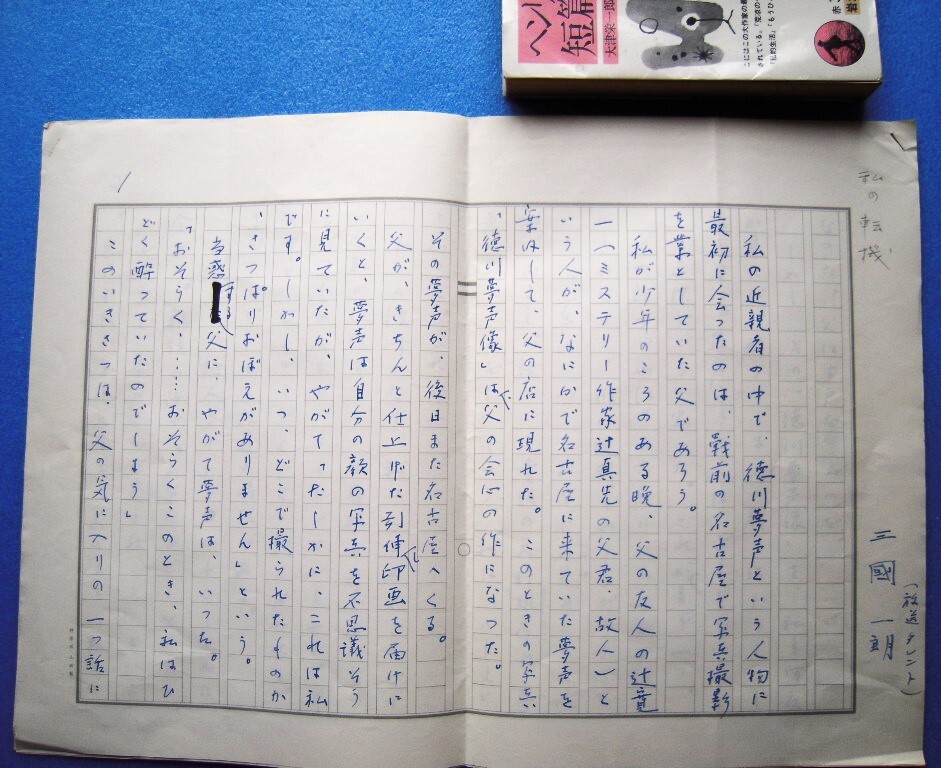 ヘン
短篇
大津栄一郎
赤
岩
私の転機
三國一朗
(放送タレント)
私の近親者の中で、徳川夢声という人物に
最初に会ったのは、戦前の名古屋で写真撮影
を業としていた父であろう。
私が少年のころのある晩、父の友人の辻寛
一(ミステリー作家辻真先の父君、故人)と
いう人が、なにかで名古屋に来ていた夢声を
案内して、父の店に現れた。このときの写真
「徳川夢声像」は父の会心の作になった。
その夢声が、後日また名古屋へくる。
父が、きちんと仕上げた引伸印画を届けに
いくと、夢声は自分の顔の写真を不思議そう
に見ていたが、やがて「たしかに、これは私
です。しかし、いつ、どこで撮られたものか
、さっぱりおぼえがありません」という。
当惑する父に、やがて夢声は、いった。
「おそらく、……おそらくこのとき、私はひ
どく酔っていたのでしょう」
このいきさつは、父の気に入りの一つ話に
1